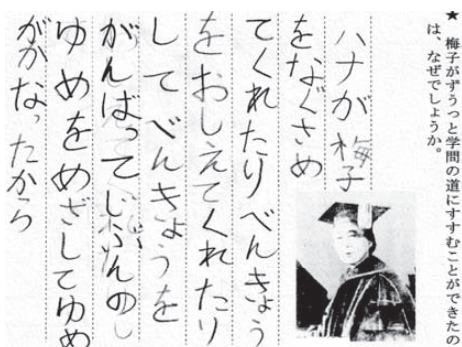 ★ 梅子がずうっと学問の道にすすむことができたの
は、なぜでしょうか。
ハナが梅子
をなぐさめ
てくれたりべんきょう
をおしえてくれたり
してべんきょうを
がんばってじぶんの
ゆめをめざしてゆめ
ががなったから